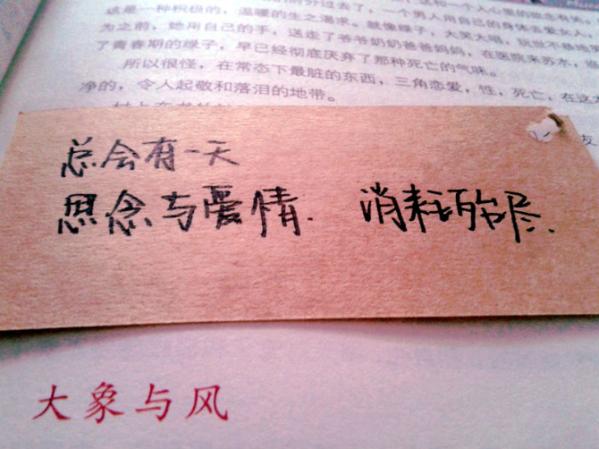 过去了,一个男人用自己的身体去爱女人,
这是一种积极的,温暖的生之渴求。就像绿子,大笑大唱,玩世不恭地
为之前,她用自己的手,送走了爷爷奶奶爸爸妈妈,在医院来苏水,
了青春期的绿子,早已经彻底厌弃了那种死亡的气味。
所以很怪,在常态下最脏的东西,三角恋爱,性,死亡,在这
净的,令人起敬和落泪的地带。
总会有一天
思念与爱情. 消耗殆尽.
大象与风